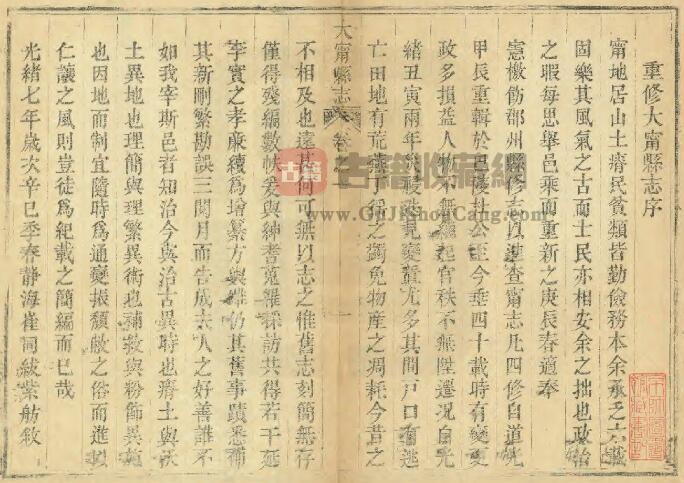 重修大甯縣志序
甯地居山土瘠民貧類皆勤儉務本余承乏六載
固樂其風氣之古而士民亦相安余之拙也政治
之暇每思舉邑乘而重新之庚辰春適奉
憲檄飭郡州縣修志以進查甯志凡四修自道光
甲辰重輯於邑杜公至今垂四十載時有變更
政多損益人物不無起官秩不無陞遷况自光
緒丑寅兩年見變遷尤多其間戶口有逃
亡田地有荒之蠲免物產之凋耗今昔之
大甯縣志 卷 序 一
不相及也遠甚何可無以志之惟舊志刻簡無存
僅得殘編數帙爰與紳耆蒐羅採訪共得若干延
李實之孝廉續爲增纂方與仍其舊事蹟悉補
其新刪繁勘誤三閱月而告成夫人之好善誰不
如我宰斯邑者知治今與治古異時也瘠土與沃
土異地也理簡與理繁異術也補救與粉飾異施
也因地而制宜隨時爲通變振頹敝之俗而進以
仁讓之風則豈徒爲紀載之簡編而已哉
光緒七年歲次辛巳季春靜海崔同紱紫舫敘
古籍
古籍收藏網
www.GuJiShouCang.com